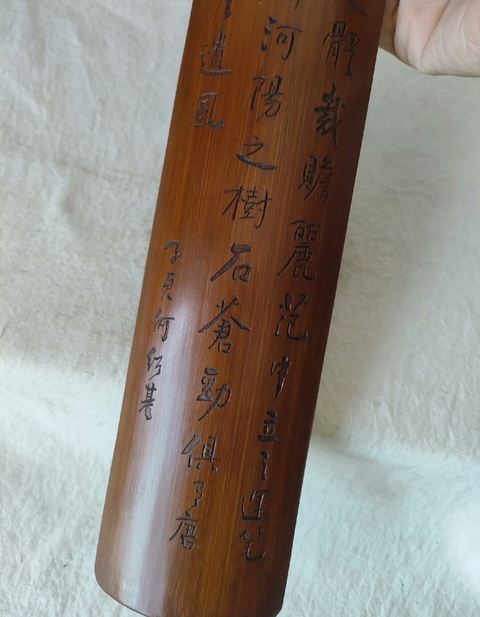 體裁贍麗范中立之運笔
河陽之樹石蒼勁俱有唐
遺風
子貞何紹基